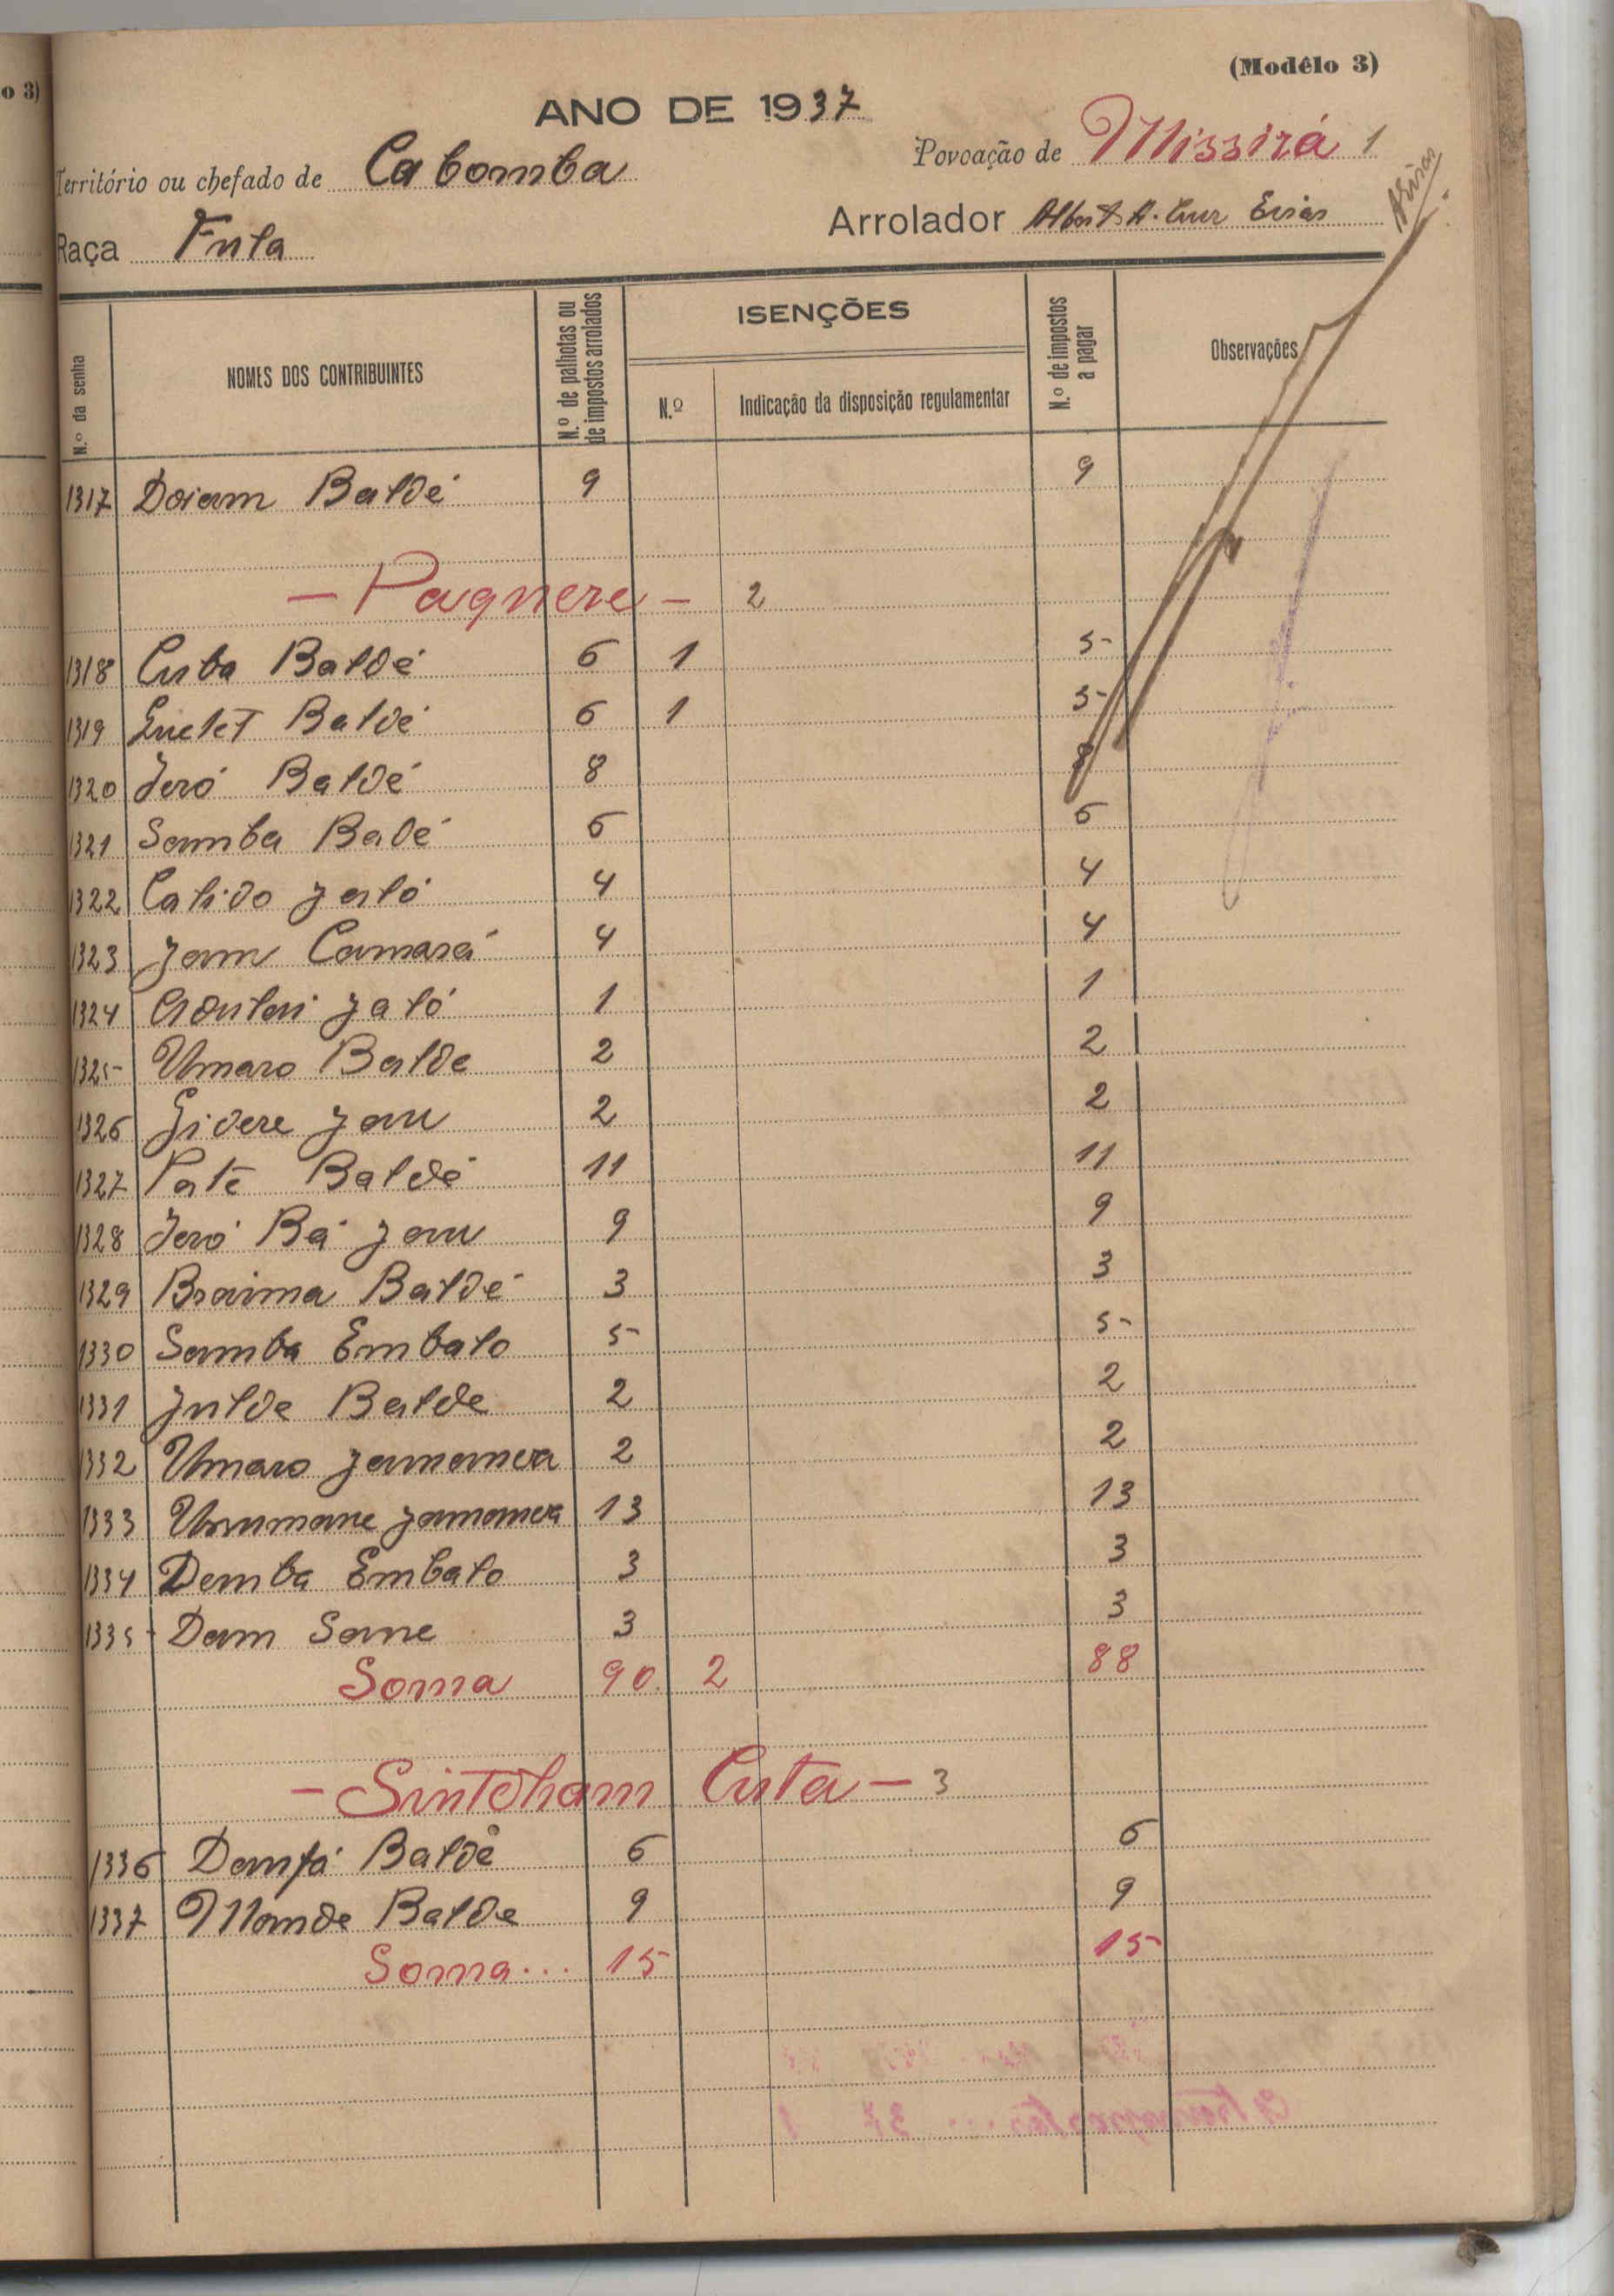 (Modêlo 3)
o 3)
ANO DE 1937
Território ou chefado de Cabomba Povoação de Missirá 1
Raça Fula Arrolador
N.º da senha NOMES DOS CONTRIBUINTES N.º de palhotas ou de impostos arrolados ISENÇÕES N.º Indicação da disposição regulamentar N.º de impostos a pagar Observações
1317 Doiam Baldé 9 9
— Pagnere — 2
1318 Cuba Baldé 6 1 5
1319 Baldé 6 1 5
1320 Jeró Baldé 8 8
1321 Samba Badé 6 6
1322 Calido Jaló 4 4
1323 Jam Camará 4 4
1324 Adulai Jaló 1 1
1325 Umaro Balde 2 2
1326 Gidere Jau 2 2
1327 Paté Baldé 11 11
1328 Jeró Bá Jau 9 9
1329 Braima Baldé 3 3
1330 Samba Embalo 5 5
1331 Julde Balde 2 2
1332 Umaro Jamanca 2 2
1333 Umumane Jamanca 13 13
1334 Demba Embalo 3 3
1335 Dam Sane 3 3
Soma 90 2 88
— Sintcham Cuta — 3
1336 Danfá Baldé 6 6
1337 Mamde Balde 9 9
Soma... 15 15